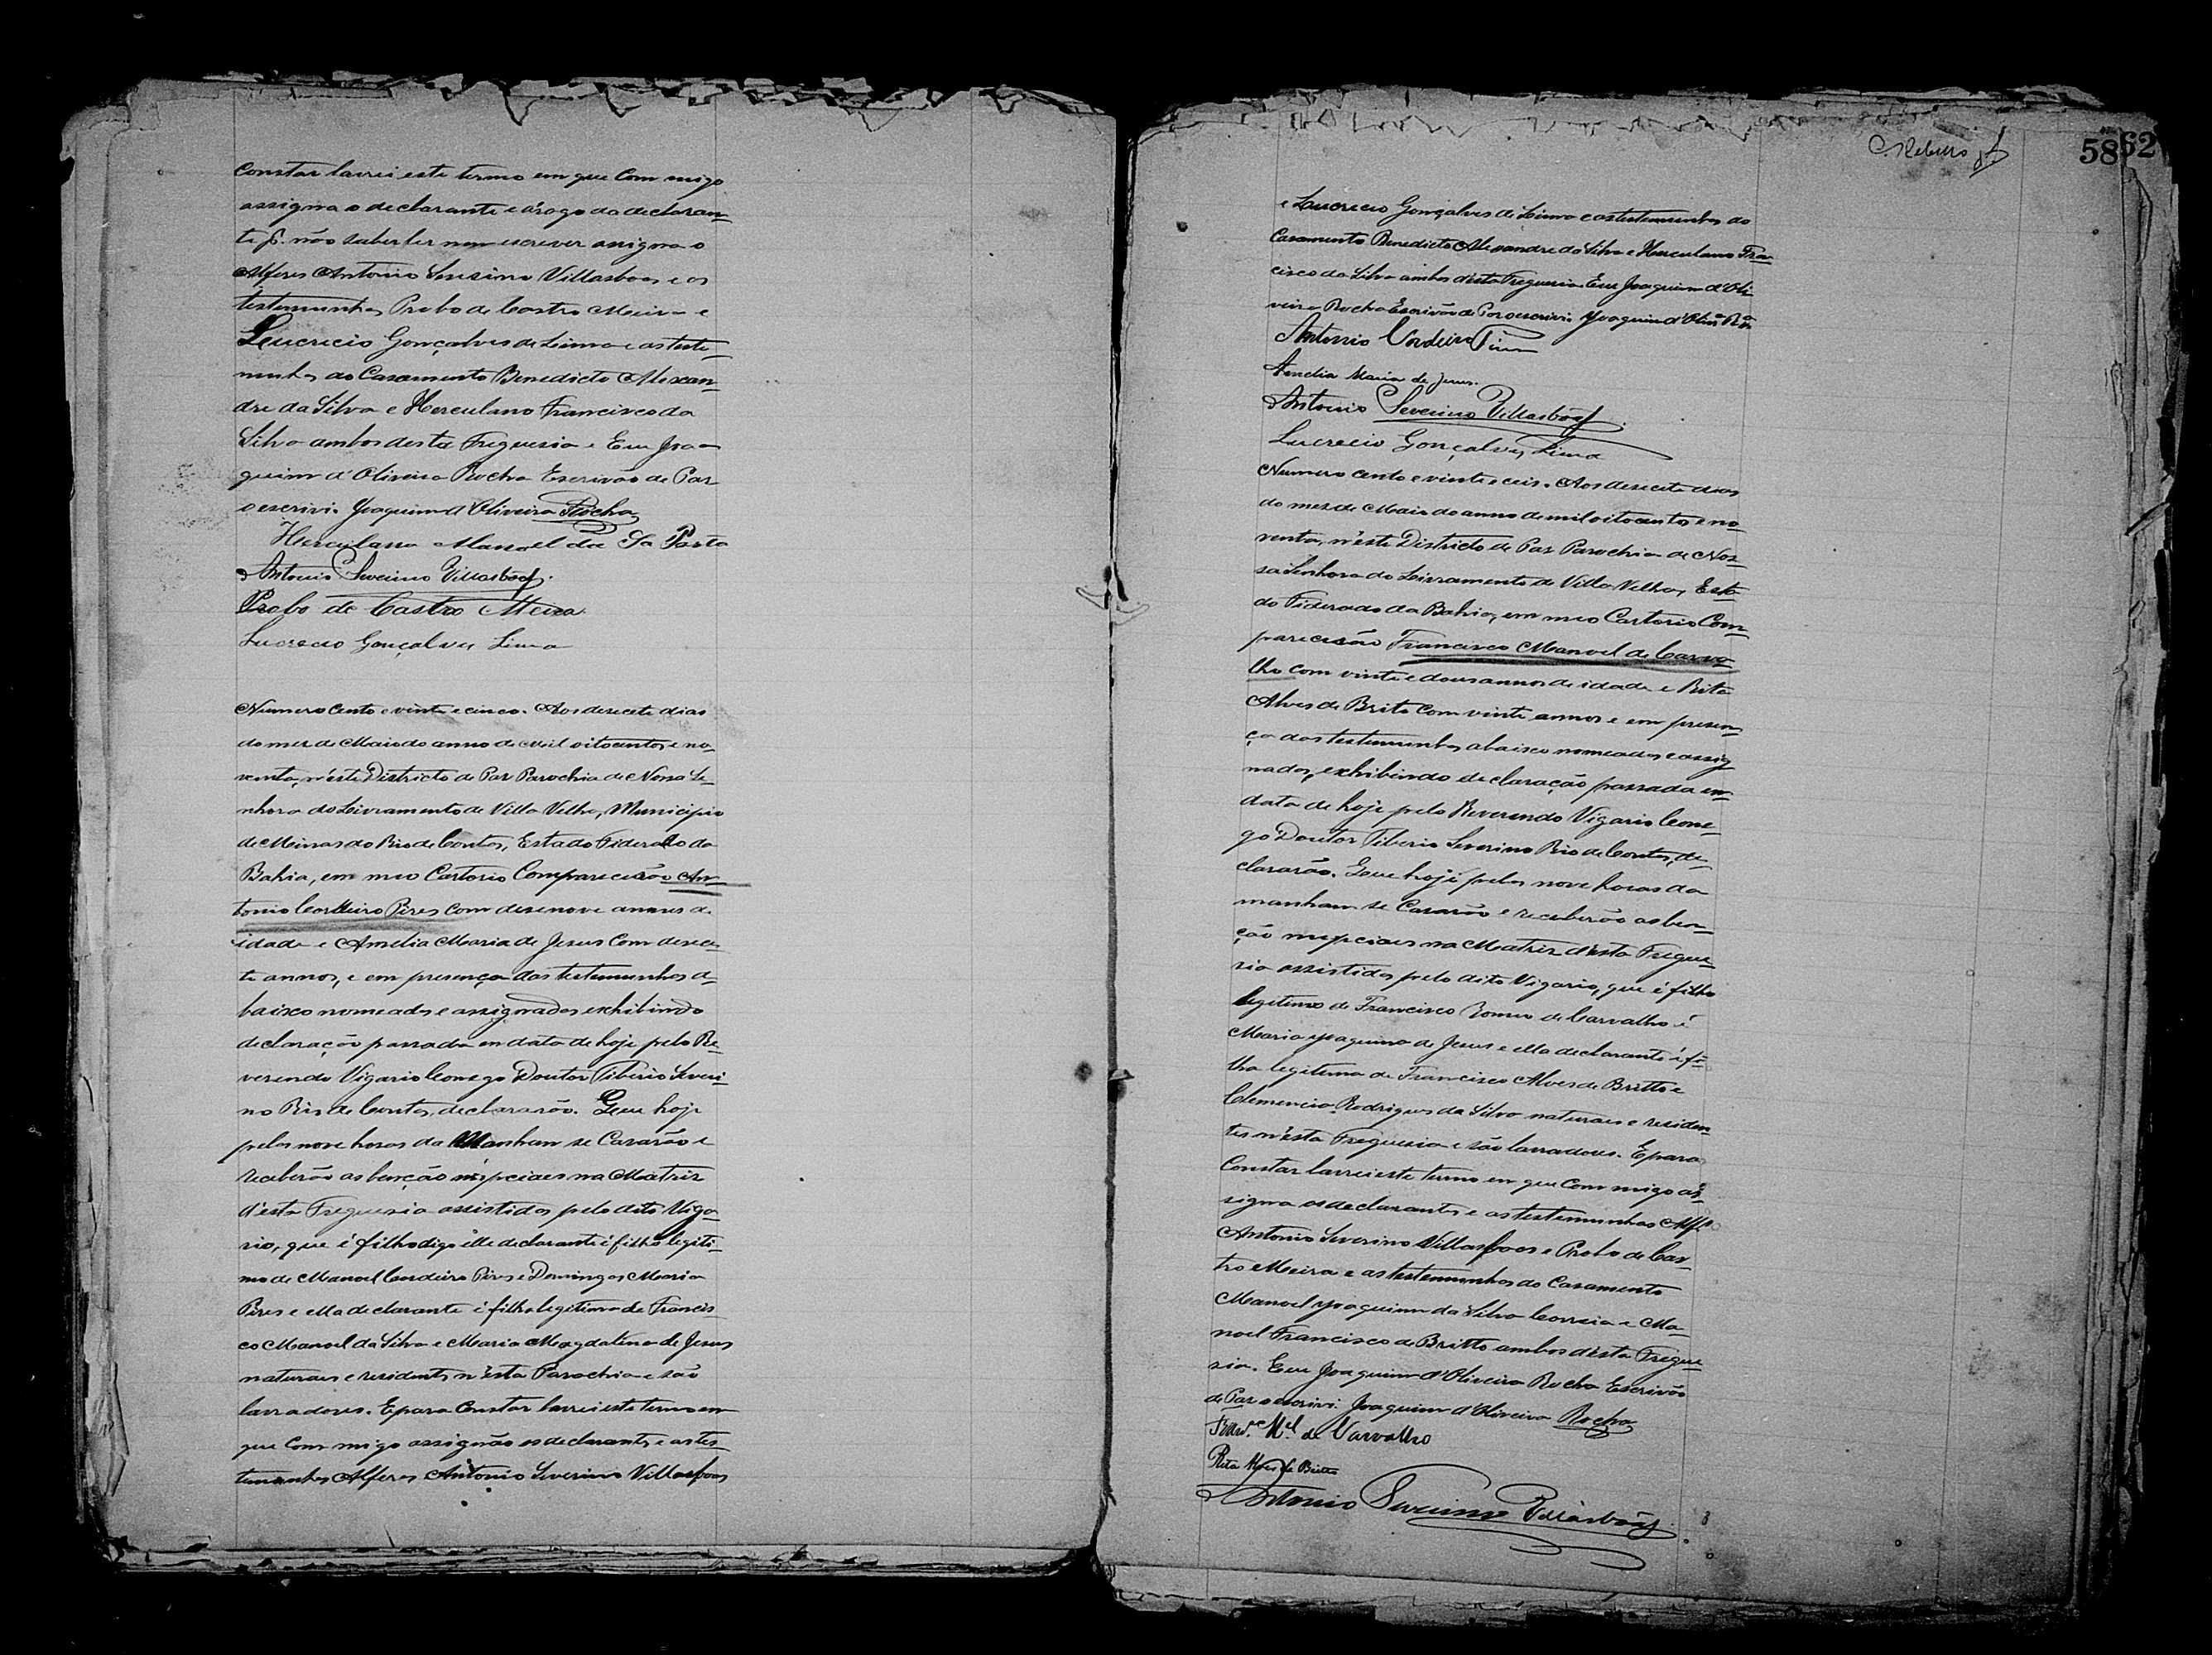 Constar lavrei este termo em que Com migo
assigna o declarante e árogo da declaran-
te p. não saber ler nem escrever assigna o
Alferes Antonio Severino Villasboas e as
testemunhas Probo de Castro Meira e
Lucrecio Gonçalves de Lima e as teste-
munhas do Casamento Benedicto Alexan-
dre da Silva e Herculano Francisco da
Silva ambos desta Freguesia. Eu Joa-
quim d'Oliveira Rocha Escrivão de Paz
o escrivi. Joaquim d'Oliveira Rocha
Herculano Manoel da
Antonio Severino Villasbôas.
Probo de Castro Meira
Lucrecio Gonçalves Lima
Numero Cento e vinte e cinco. Aos desecete dias
do mez de Maio do anno de mil oitocentos e no-
venta, n'este Districto de Paz Parochia de Nossa Se-
nhora do Livramento de Villa Velha, Municipio
de Minas do Rio de Contas, Estado Fiderado da
Bahia, em meo Cartorio Comparecerão An-
tonio Cordeiro Pires com desenove annos de
idade e Amelia Maria de Jesus Com desece-
te annos, e em presença das testemunhas a-
baixo nomeados e assignados exhibindo
declaração passada em data de hoje pelo Re-
verendo Vigario Conego Doutor Tiberio Severi-
no Rio de Contas, declararão. Que hoje
pelas nove horas da Manham se Casarão e
receberão as benção nupciaes na Matriz
d'esta Freguesia assistidos pelo dito Viga-
rio, que é filho digo elle declarante é filho legiti-
mo de Manoel Cordeiro Pires e Domingas Maria
Pires e ella declarante é filha legitima de Francis-
co Manoel da Silva e Maria Magdalena de Jesus
naturaes e residentes n'esta Parochia e são
lavradores. E para Constar lavrei este termo em
que Com migo assignão os declarantes e as tes-
temunhas Alferes Antonio Severino Villasboas
C. Rebello
58 62
e Lucrecio Gonçalves de Lima e as testemunhas do
Casamento Benedicto Alexandre da Silva e Herculano Fran-
cisco da Silva ambos d'esta Freguesia. Eu Joaquim d'Oli-
veira Rocha Escrivão de Paz o escrivi. Joaquim d'Olivª Rª
Antonio Cordeiro Pires
Amelia Maria de Jesus.
Antonio Severino Villasbôas.
Lucrecio Gonçalves Lima
Numero cento e vinte e ceis. Aos desecete dias
do mez de Maio do anno de mil oitocentos e no-
venta, n'este Districto de Paz Parochia de Nos-
sa Senhora do Livramento de Villa Velha, Esta-
do Fiderado da Bahia, em meo Cartorio Com-
parecerão Francisco Manoel de Carva-
lho com vinte e dous annos de idade e Rita
Alves de Brito Com vinte annos e em presen-
ça das testemunhas abaixo nomeadas e assig-
nados, exhibindo declaração passada em
data de hoje pelo Reverendo Vigario Cone-
go Doutor Tiberio Severino Rio de Contas, de-
clararão. Que hoje pelas nove horas da
manham se Casarão e receberão as ben-
ção nupciaes na Matriz d'esta Fregue-
sia assistidos pelo dito Vigario, que é filho
legitimo de Francisco Romeu de Carvalho é
Maria Joaquina de Jesus e ella declarante é fi-
lha legitima de Francisco Alves de Britto e
Clemencia Rodrigues da Silva naturaes e residen-
tes n'esta Freguesia e são lavradores. E para
Constar lavrei este termo em que Com migo as-
signa os declarantes e as testemunhas Alfs.
Antonio Severino Villasboas e Probo de Cas-
tro Meira e as testemunhas do Casamento
Manoel Joaquim da Silva Correia e Ma-
noel Francisco de Britto ambos d'esta Fregue-
sia. Eu Joaquim d'Oliveira Rocha Escrivão
de Paz o escrivi. Joaquim d'Oliveira Rocha
Franc.º M.el de Carvalho
Rita Alves de Britto
Antonio Severino Villasbôas